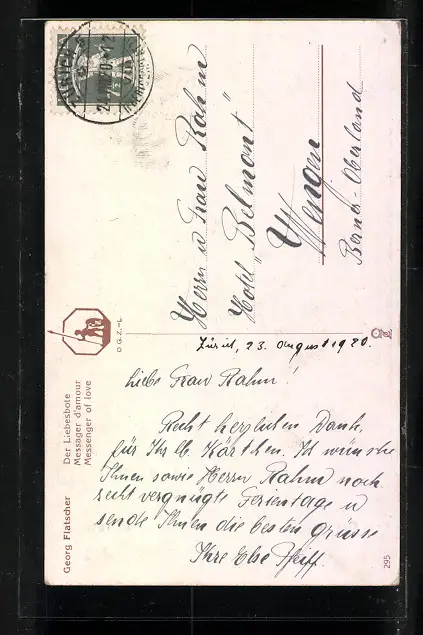 Herrn u Frau Rahm
Hotel „Belmont"
Wengen
Berner-Oberland
D.G.Z.-L.
Zürich, 23. August 1920.
Liebe Frau Rahm!
Recht herzlichen Dank
für Ihr lb. Kärtchen. Ich wünsche
Ihnen sowie Herrn Rahm noch
recht vergnügte Ferientage u
sende Ihnen die besten Grüsse
Ihre Else Pfeiff.
Georg Flatscher
Der Liebesbote
Messager d'amour
Messenger of love
295